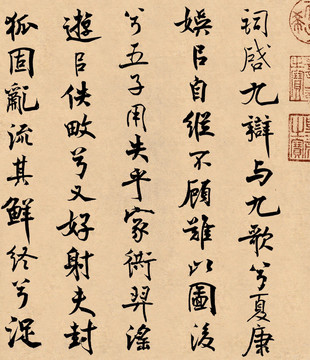 詞啓九辯与九歌兮夏康
娱㠯自縱不顧難以圖後
兮五子用失乎家術羿滛
遊㠯佚畋兮又好射夫封
狐固亂流其鮮終兮浞